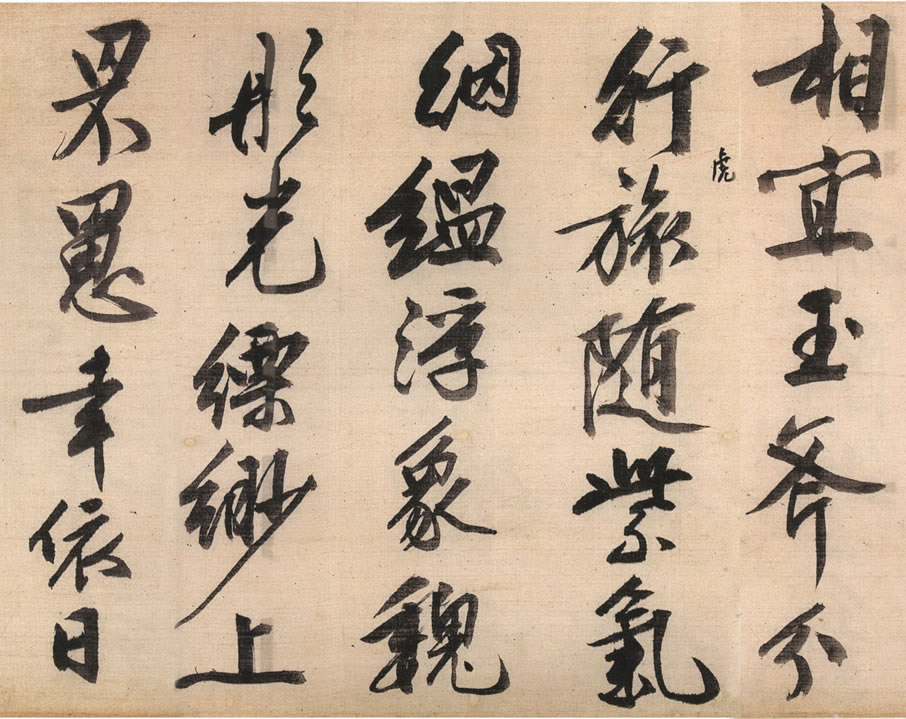 相宜玉斧分
虎
行旅随紫氣
絪緼浮象魏
彤光縹緲上
罘罳幸依日